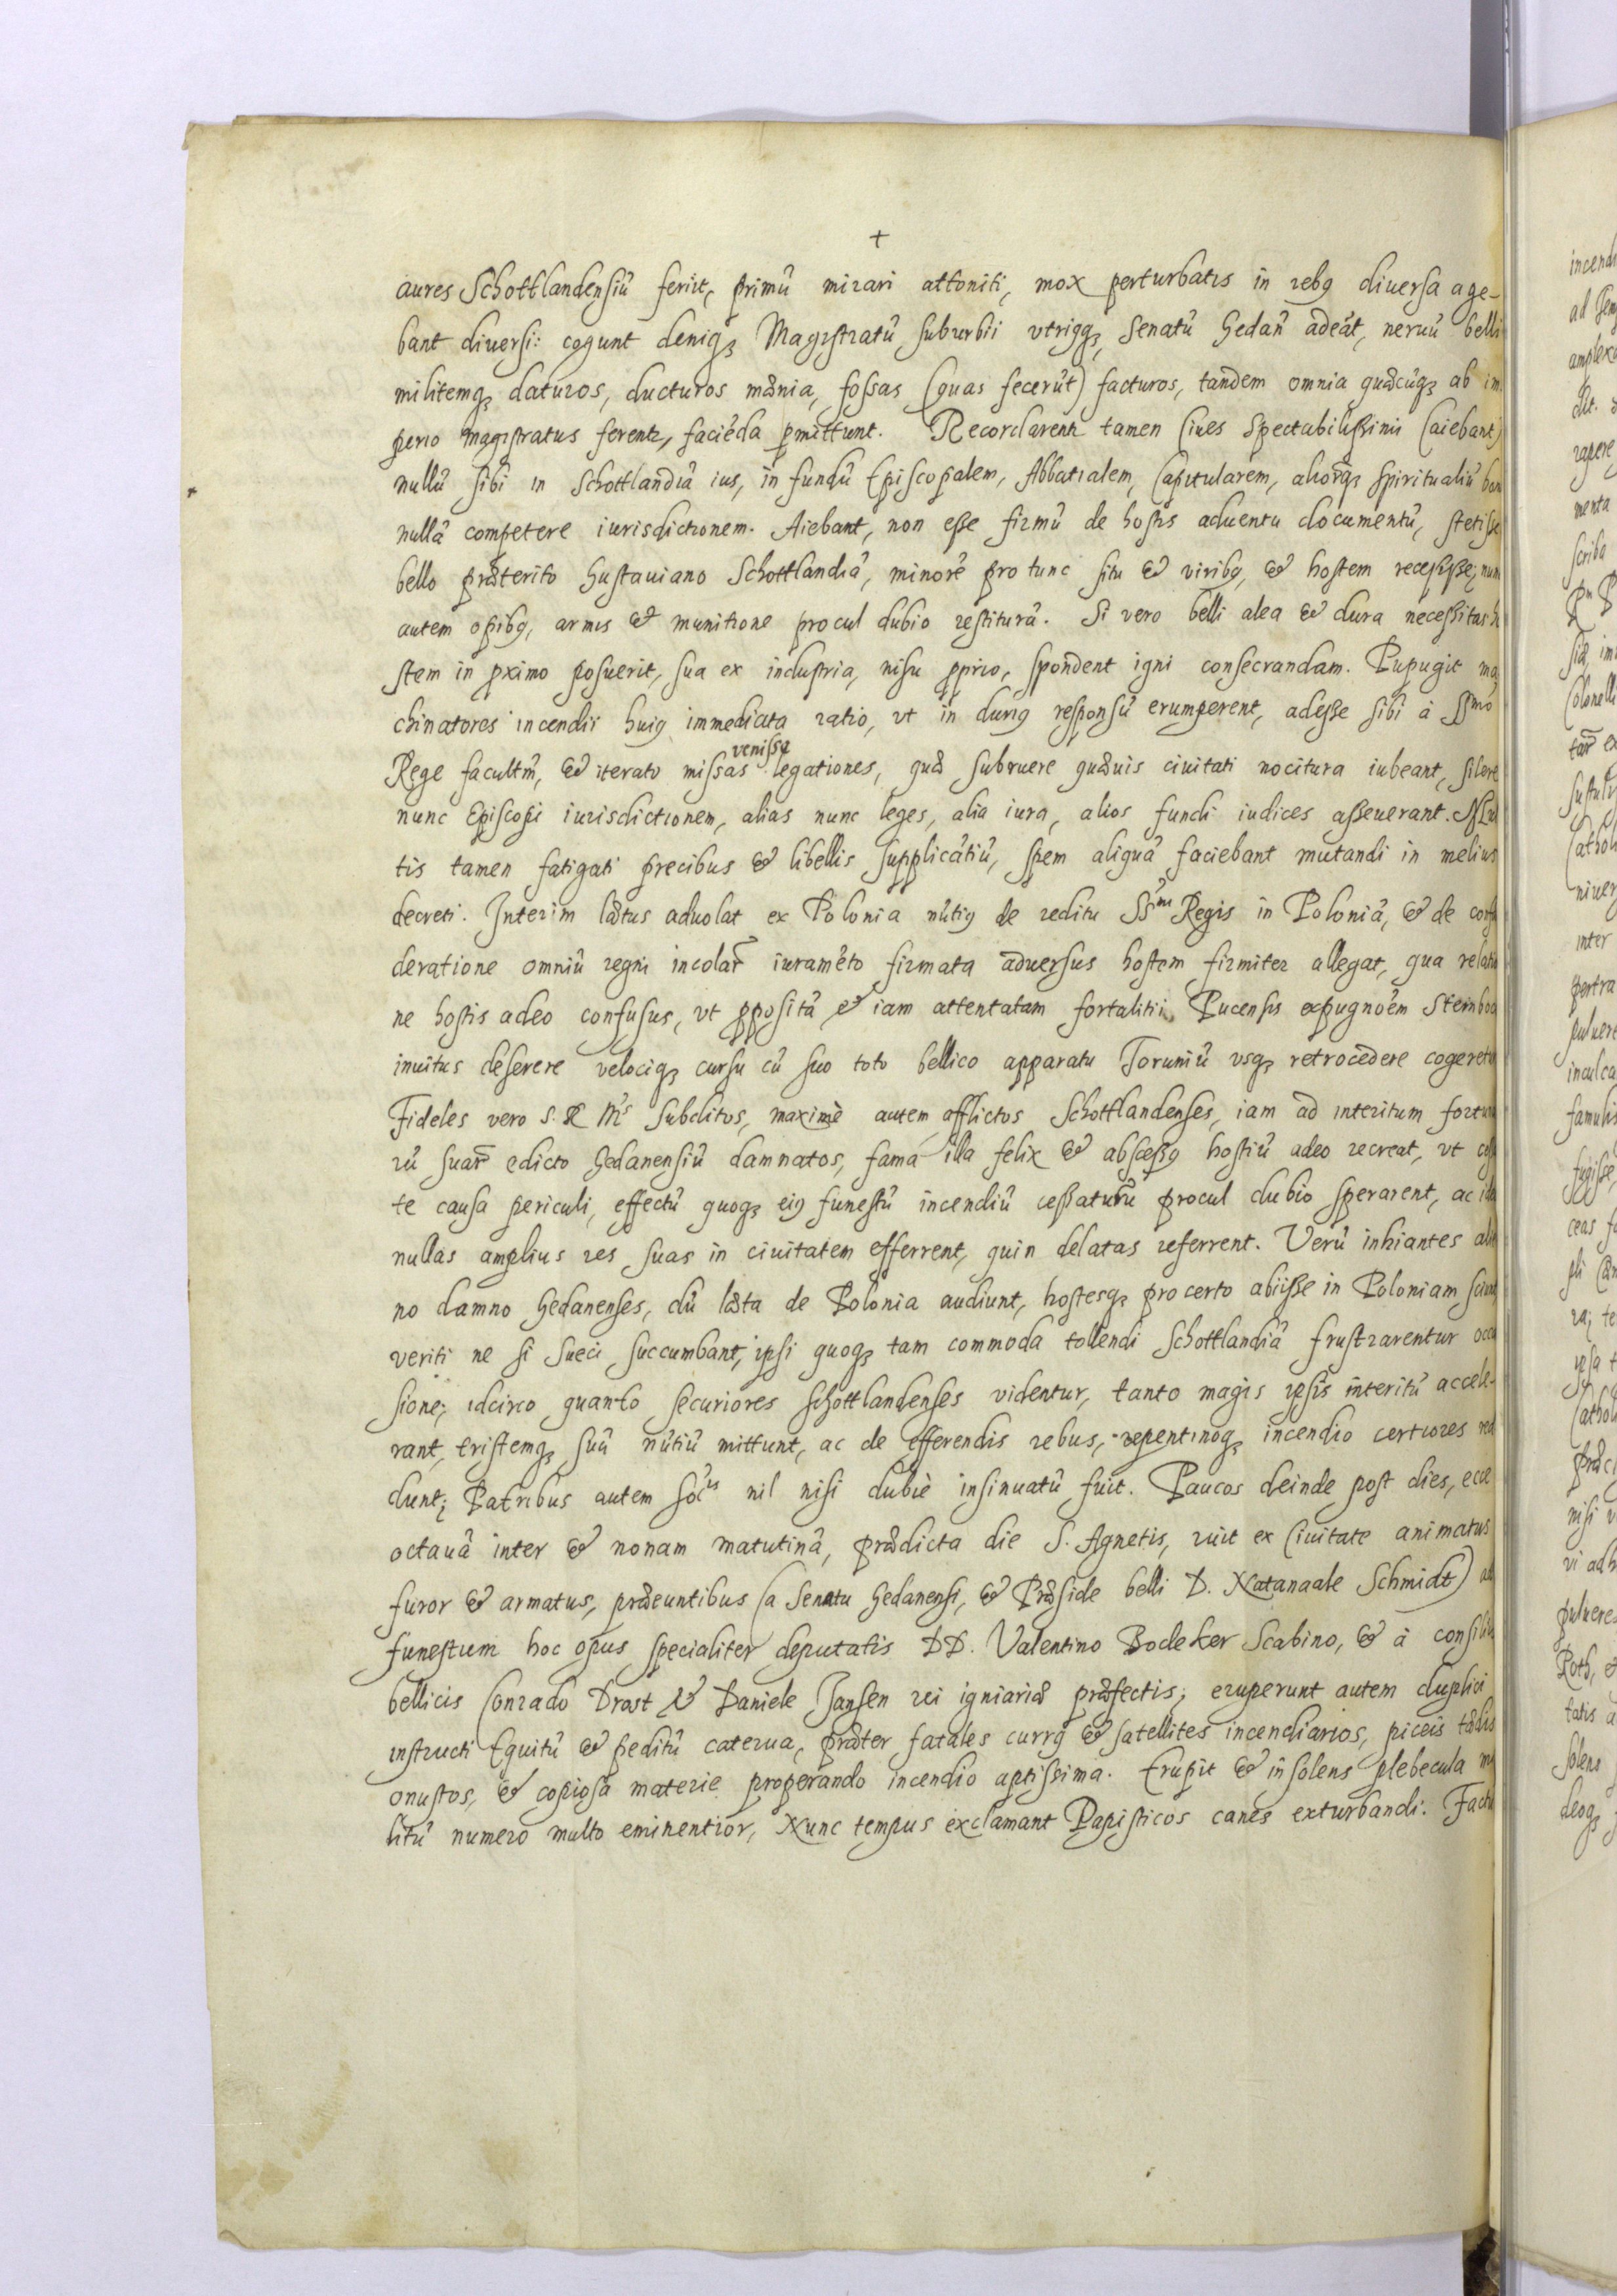 +
aures Schottlandensiũ feriit, primũ mirari attoniti, mox perturbatis in rebꝰ diuersa age-
bant diuersi: cogunt deniqꝫ Magistratũ suburbii vtriqꝫ, Senatũ Gedan̄ adeãt, neruũ belli
militemqꝫ daturos, ducturos mænia, fossas (quas fecerũt) facturos, tandem omnia quæcũqꝫ ab im
perio magistratus ferentr, faciẽda pmittunt. Recordarentr tamen Ciues Spectabilissimi (aiebant)
nullũ sibi in Schottlandiã ius, in fundũ Episcopalem, Abbatialem, Capitularem, aliorqꝫ spiritualiũ bon
nullã competere iurisdictionem. Aiebant, non esse firmũ de hostis aduentu documentũ, stetisse
bello præterito Gustauiano Schottlandiã, minorẽ pro tunc situ & viribꝰ, & hostem recessisse; nunc
autem opibꝰ, armis & munitione procul dubio restiturã. Si vero belli alea & dura necessitas ho
stem in pximo posuerit, sua ex industria, nisu pprio, spondent igni consecrandam. Pupugit ma
chinatores incendii huiꝰ immediata ratio, vt in duriꝰ responsũ erumperent, adesse sibi à SSmo
Rege facultm̃, & iterato missas venisse legationes, quæ subruere quæuis ciuitati nocitura iubeant, silere
nunc Episcopi iurisdictionem, alias nunc leges, alia iura, alios fundi iudices asseuerant.
tis tamen fatigati precibus & libellis supplicãtiũ, spem aliquã faciebant mutandi in melius
decreti. Interim lætus aduolat ex Polonia nũtiꝰ de reditu SSmi Regis in Poloniã, & de confœ
deratione omniũ regni incolar̃ iuramẽto firmata aduersus hostem firmiter allegat, qua relatio
ne hostis adeo confusus, vt ppositã & iam attentatam fortalitii Pucensis expugnoẽm Steinboc
inuitus deserere velociqꝫ cursu cũ suo toto bellico apparatu Toruniũ vsqꝫ retrocedere cogeretur
Fideles vero S. R. Mtis subditos, maximè autem afflictos Schottlandenses, iam ad interitum fortuna
rũ suar̃ edicto Gedanensiũ damnatos, fama illa felix & abscessꝰ hostiũ adeo recreat, vt cessã
te causa periculi, effectũ quoqꝫ eiꝰ funestũ incendiũ cessaturũ procul dubio sperarent, ac ideo
nullas amplius res suas in ciuitatem efferrent, quin delatas referrent. Verũ inhiantes alie
no damno Gedanenses, dũ læta de Polonia audiunt, hostesqꝫ pro certo abiisse in Poloniam sciunt
veriti ne si Sueci succumbant, ipsi quoqꝫ tam commoda tollendi Schottlandiã frustrarentur occa
sione; idcirco quanto securiores Schottlandenses videntur, tanto magis ipsis interitũ accele-
rant, tristemqꝫ suũ nũtiũ mittunt, ac de efferendis rebus, repentinoqꝫ incendio certiores red
dunt; Patribus autem Soctis nil nisi dubiè insinuatũ fuit. Paucos deinde post dies, ecce
octauã inter & nonam matutinã, prædicta die S. Agnetis, ruit ex Ciuitate animatus
furor & armatus, præeuntibus (a Senatu Gedanensi, & Præside belli D. Natanaele Schmidt) ad
funestum hoc opus specialiter deputatis DD. Valentino Bodeker Scabino, & à consiliis
bellicis Conrado Drost & Daniele Jansen rei igniariæ præfectis; eruperunt autem duplici
instructi Equitũ & peditũ caterua, præter fatales currꝰ & satellites incendiarios, piceis tædis
onustos, & copiosã materie properando incendio aptissima. Erupit & insolens plebecula mi
litũ numero multo eminentior, Nunc tempus exclamant Papisticos canes exturbandi. Factũ